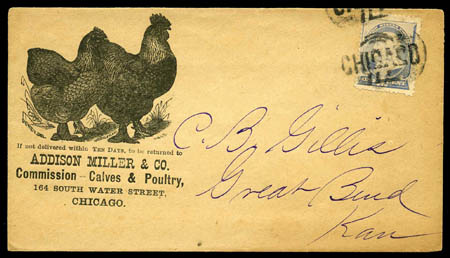 CHICAGO
ILL
If not delivered within TEN DAYS, to be returned to
ADDISON MILLER & CO.
Commission - Calves & Poultry,
164 SOUTH WATER STREET,
CHICAGO.
C. B. Gillis
Great Bend
Kan